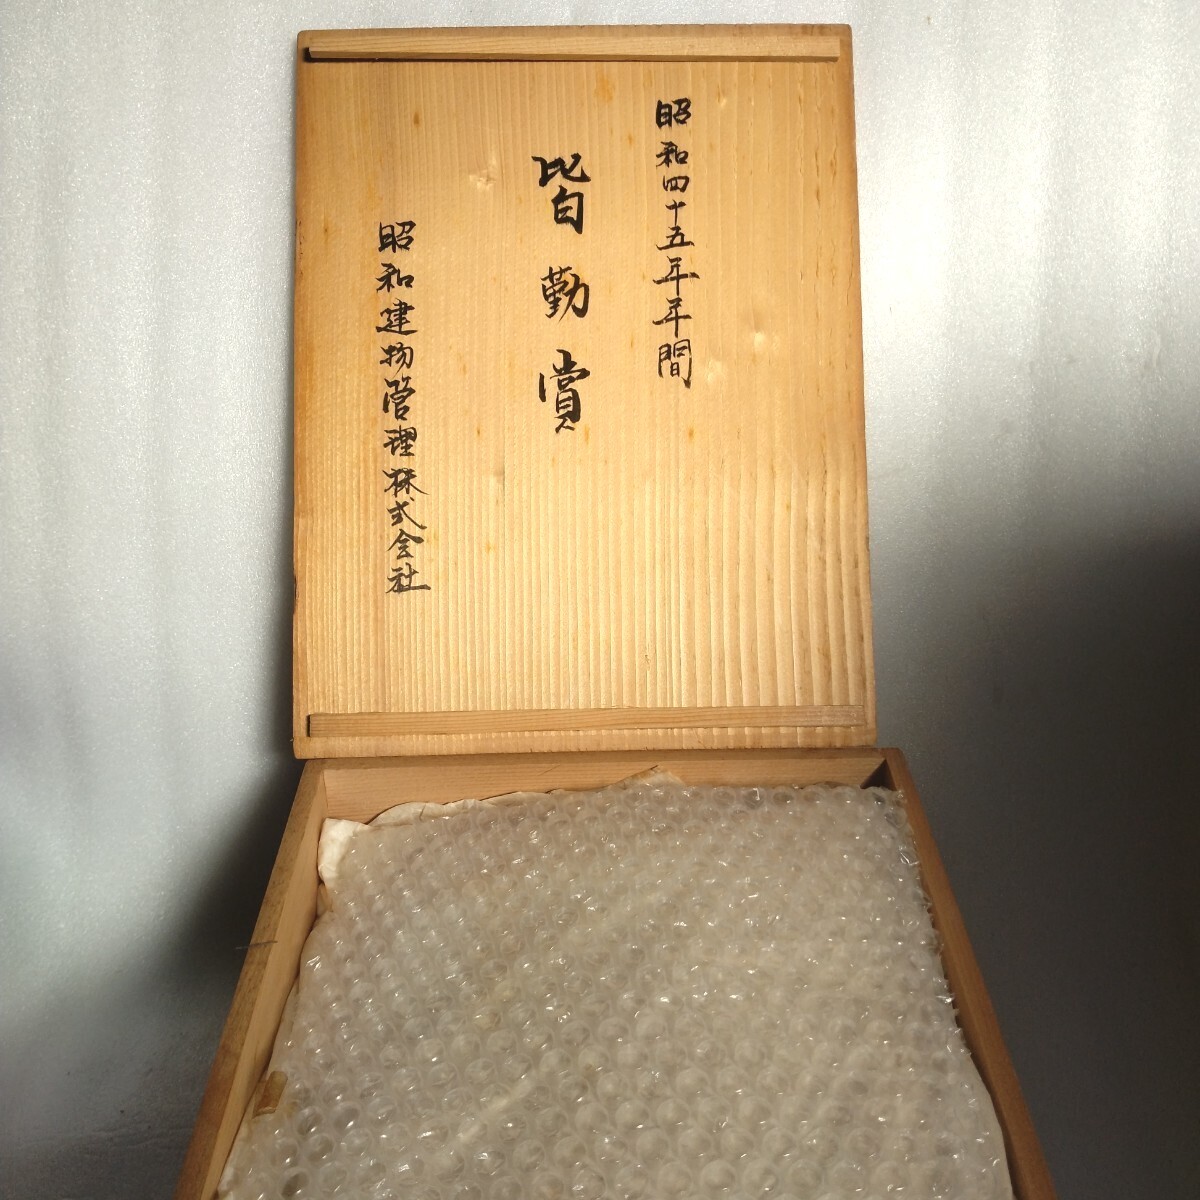 昭和四十五年年間
皆勤賞
昭和建物管理株式会社